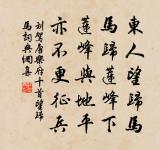 東人望歸馬
馬歸蓮峰下
蓮峰與地平
亦不更征兵
刘駕唐樂府十首望歸
馬詞典網書